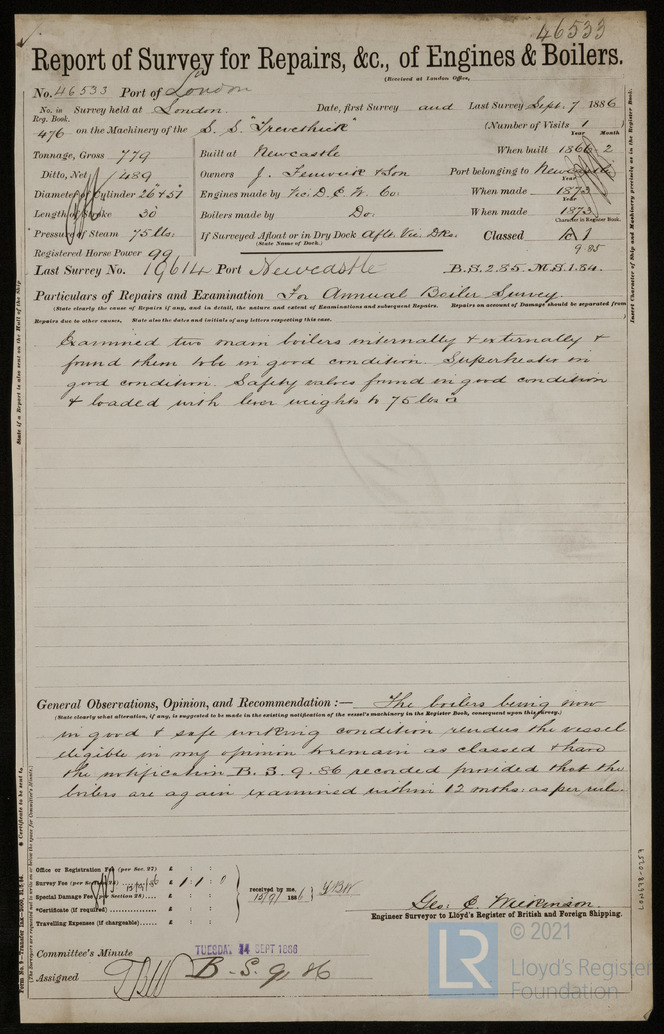 46533
Report of Survey for Repairs, &c., of Engines & Boilers.
(Received at London Office,
No. 46533 Port of London
No. in Reg. Book. Survey held at London Date, first Survey and Last Survey Sept. 7 1886
476 on the Machinery of the S. S. "Trevethick" (Number of Visits 1 )
Tonnage, Gross 779 Built at Newcastle When built 1866-2 Year Month
Ditto, Net 489 Owners J. Fenwick & Son Port belonging to Newcastle
Diameter of Cylinder 26" & 51" Engines made by Vic: D. E. W. Co: When made 1873 Year
Length of Stroke 30 Boilers made by Do: When made 1873 Year
Pressure of Steam 75 lbs. If Surveyed Afloat or in Dry Dock Aflt. Vic: Dks. Classed A1 Character in Register Book.
(State Name of Dock.) 9.85
Registered Horse Power 99
Last Survey No. 19614 Port Newcastle B.S.2.85. M.S.1.84.
Particulars of Repairs and Examination For Annual Boiler Survey.
(State clearly the cause of Repairs if any, and in detail, the nature and extent of Examinations and subsequent Repairs. Repairs on account of Damage should be separated from
Repairs due to other causes. State also the dates and initials of any letters respecting this case.
Examined two main boilers internally & externally &
found them to be in good condition. Superheater in
good condition. Safety valves found in good condition
& loaded with lever weights to 75 lbs □"
General Observations, Opinion, and Recommendation :— The boilers being now
(State clearly what alteration, if any, is suggested to be made in the existing notification of the vessel's machinery in the Register Book, consequent upon this survey.)
in good & safe working condition renders the vessel
eligible in my opinion to remain as classed & have
the notification B. S. 9. 86 recorded provided that the
boilers are again examined within 12 mths: as per rule.
Office or Registration Fee (per Sec. 27) £ : :
Survey Fee (per Section 28) 13/9/86 £ 1 : 1 : 0
Special Damage Fee (per Section 28) £ : :
*Certificate (if required) £ : :
Travelling Expenses (if chargeable) £ : :
received by me, 15/9/ 1886
Geo: C. Wilkinson
Engineer Surveyor to Lloyd's Register of British and Foreign Shipping.
Committee's Minute TUESDAY 14 SEPT 1886
Assigned B. S. 9. 86
State if a Report is also sent on the Hull of the Ship
* Certificate to be sent to
(The Surveyors are requested not to write on or below the space for Committee's Minute.)
Insert Character of Ship and Machinery precisely as in the Register Book.
LON698-0257
© 2021
LR
Lloyd's Register
Foundation